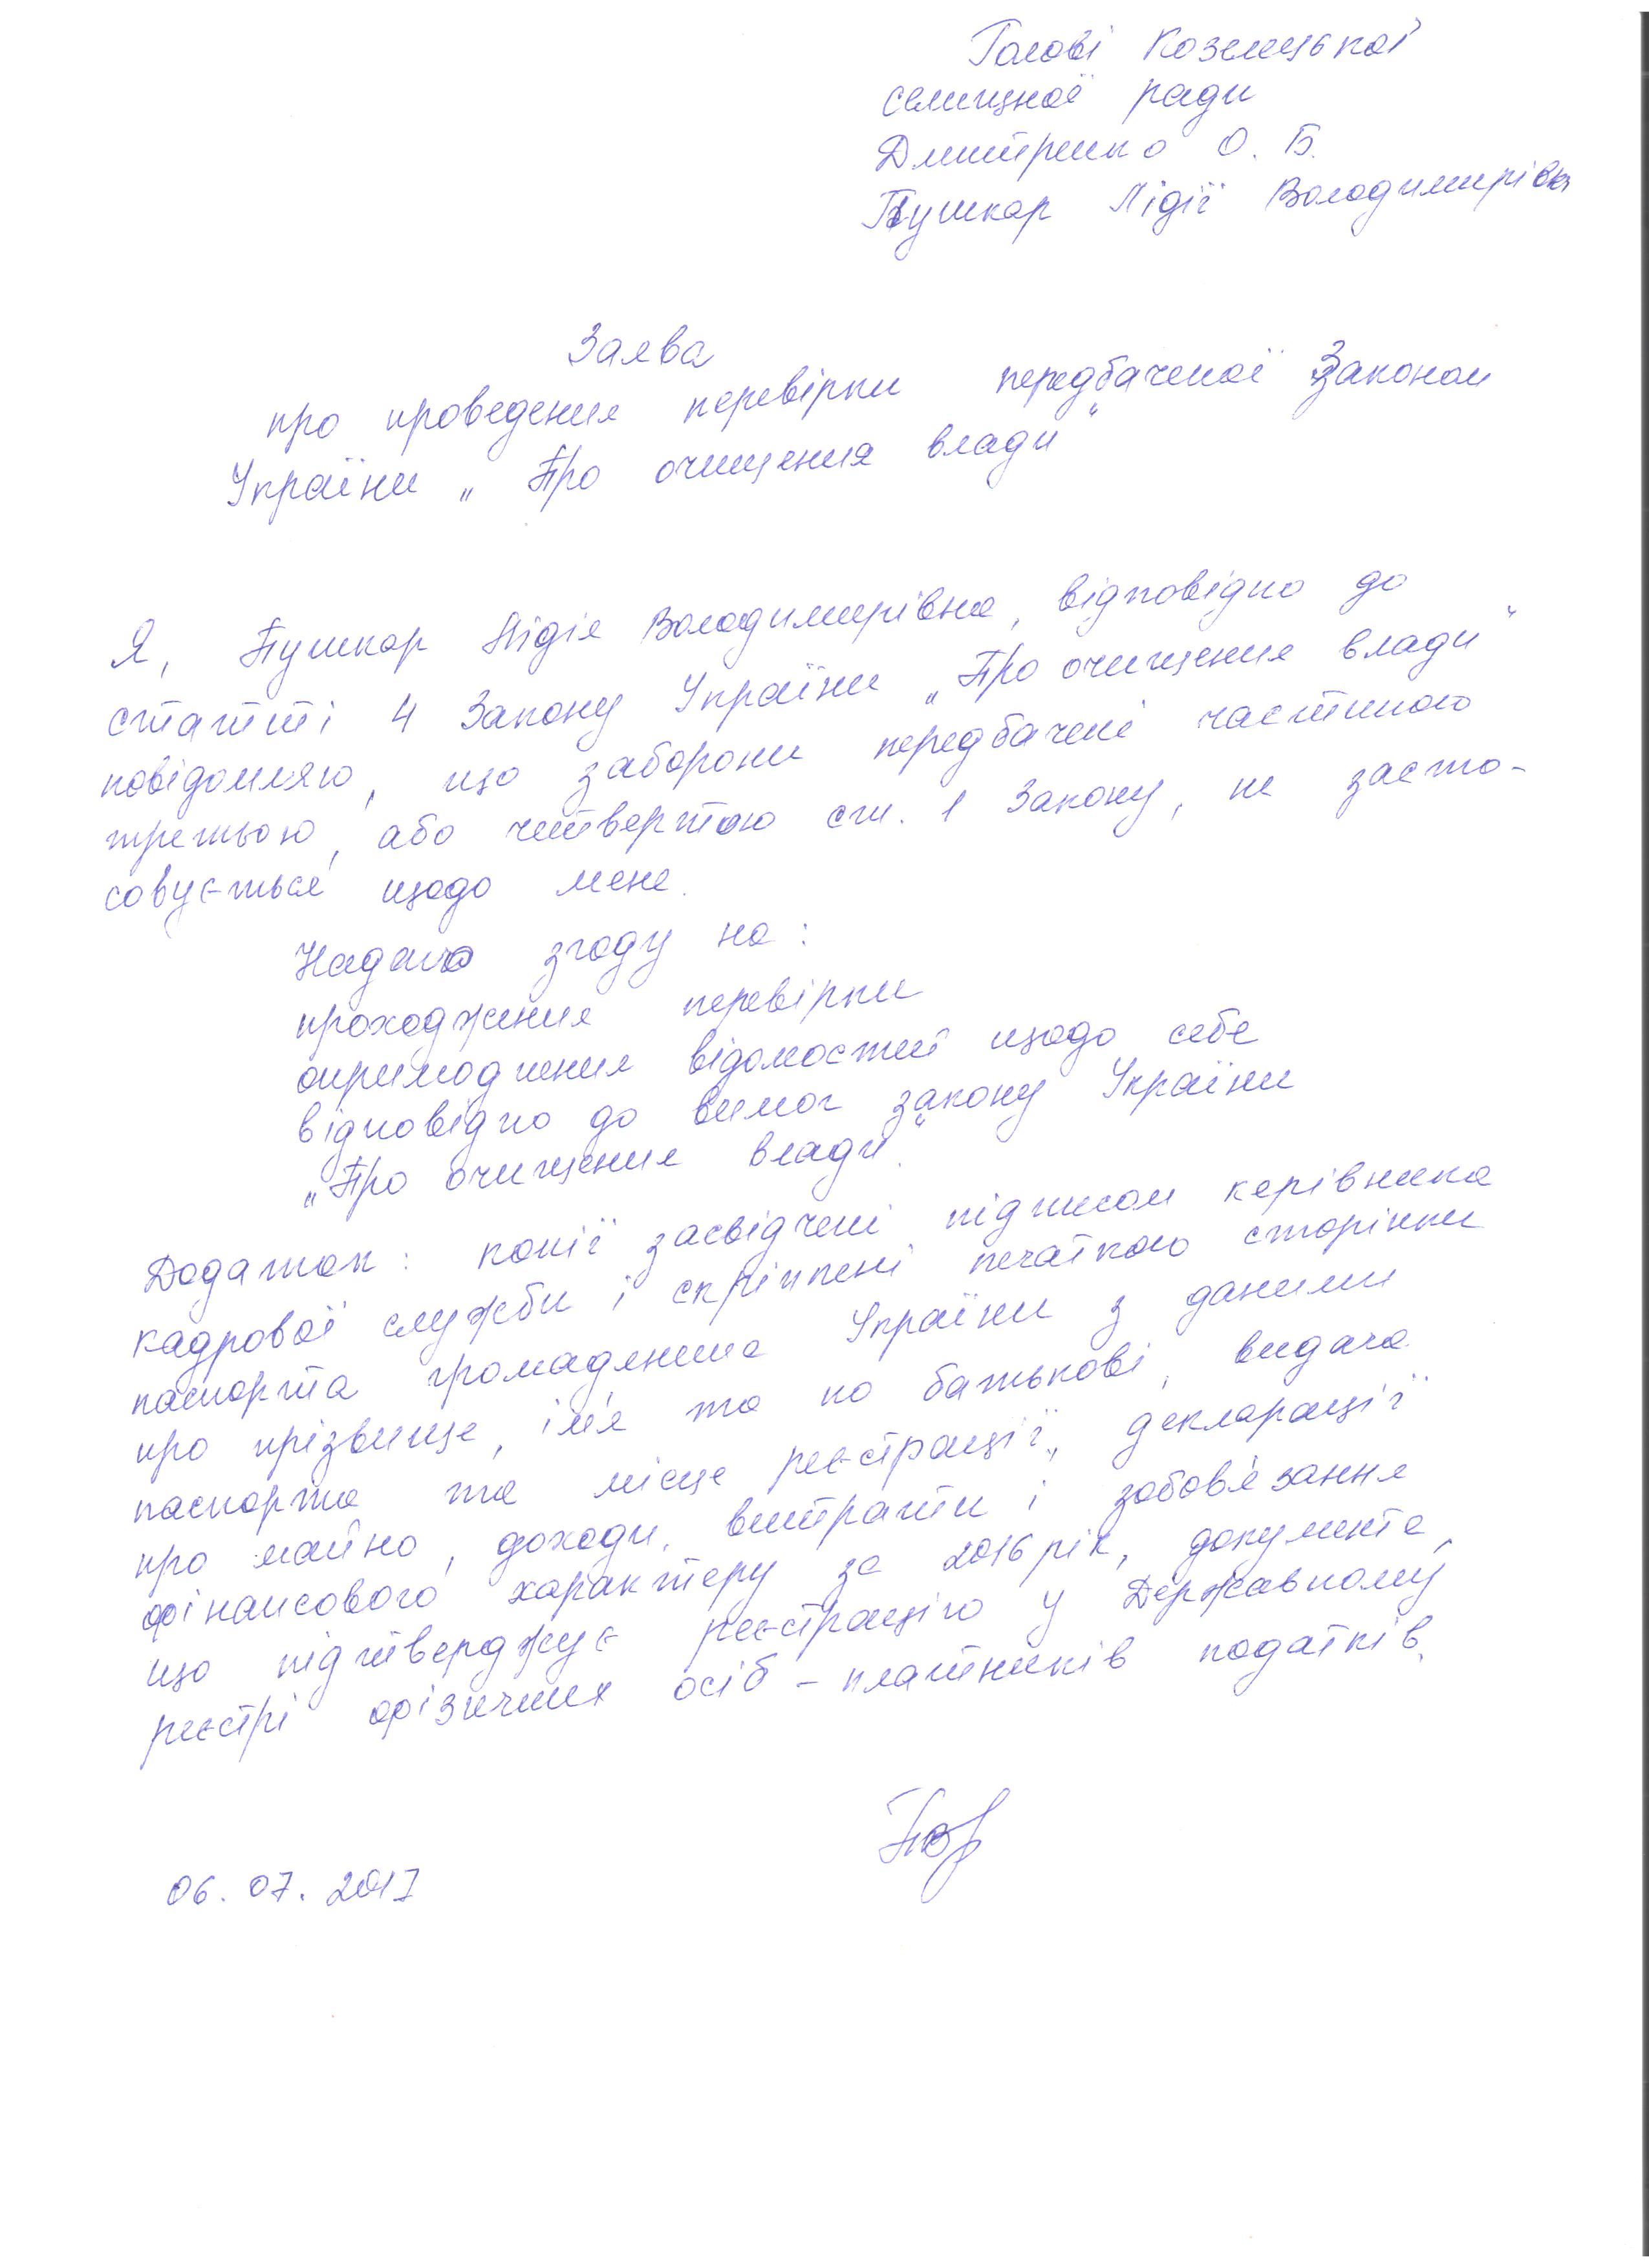 Голові Козелецької
селищної ради
Дмитренко О. Б.
Пушкар Лідії Володимирівни
Заява
про проведення перевірки передбаченої Законом
України „Про очищення влади“
Я, Пушкар Лідія Володимирівна, відповідно до
статті 4 Закону України „Про очищення влади“
повідомляю, що заборони передбачені частиною
третьою, або четвертою ст. 1 Закону, не засто-
совується щодо мене.
Надаю згоду на:
проходження перевірки
оприлюднення відомостей щодо себе
відповідно до вимог закону України
„Про очищення влади“.
Додаток: копії засвідчені підписом керівника
кадрової служби і скріплені печаткою сторінки
паспорта громадянина України з даними
про прізвище, ім'я та по батькові, видача
паспорта та місце реєстрації, декларації
про майно, доходи, витрати і зобов'язання
фінансового характеру за 2016 рік, документа,
що підтверджує реєстрацію у Державному
реєстрі фізичних осіб – платників податків.
06.07.2017